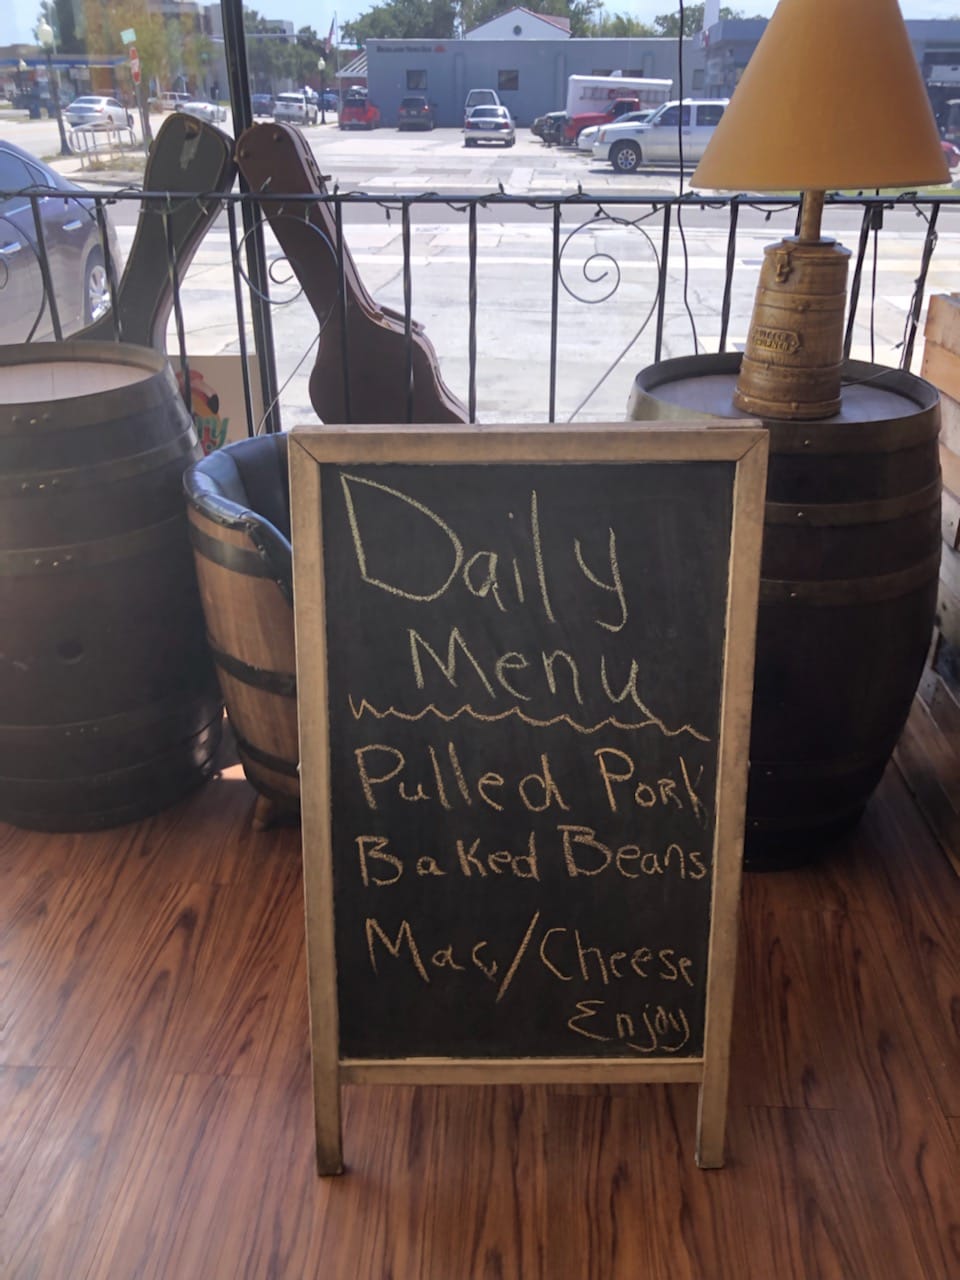 Daily
Menu
Pulled Pork
Baked Beans
Mac/Cheese
Enjoy